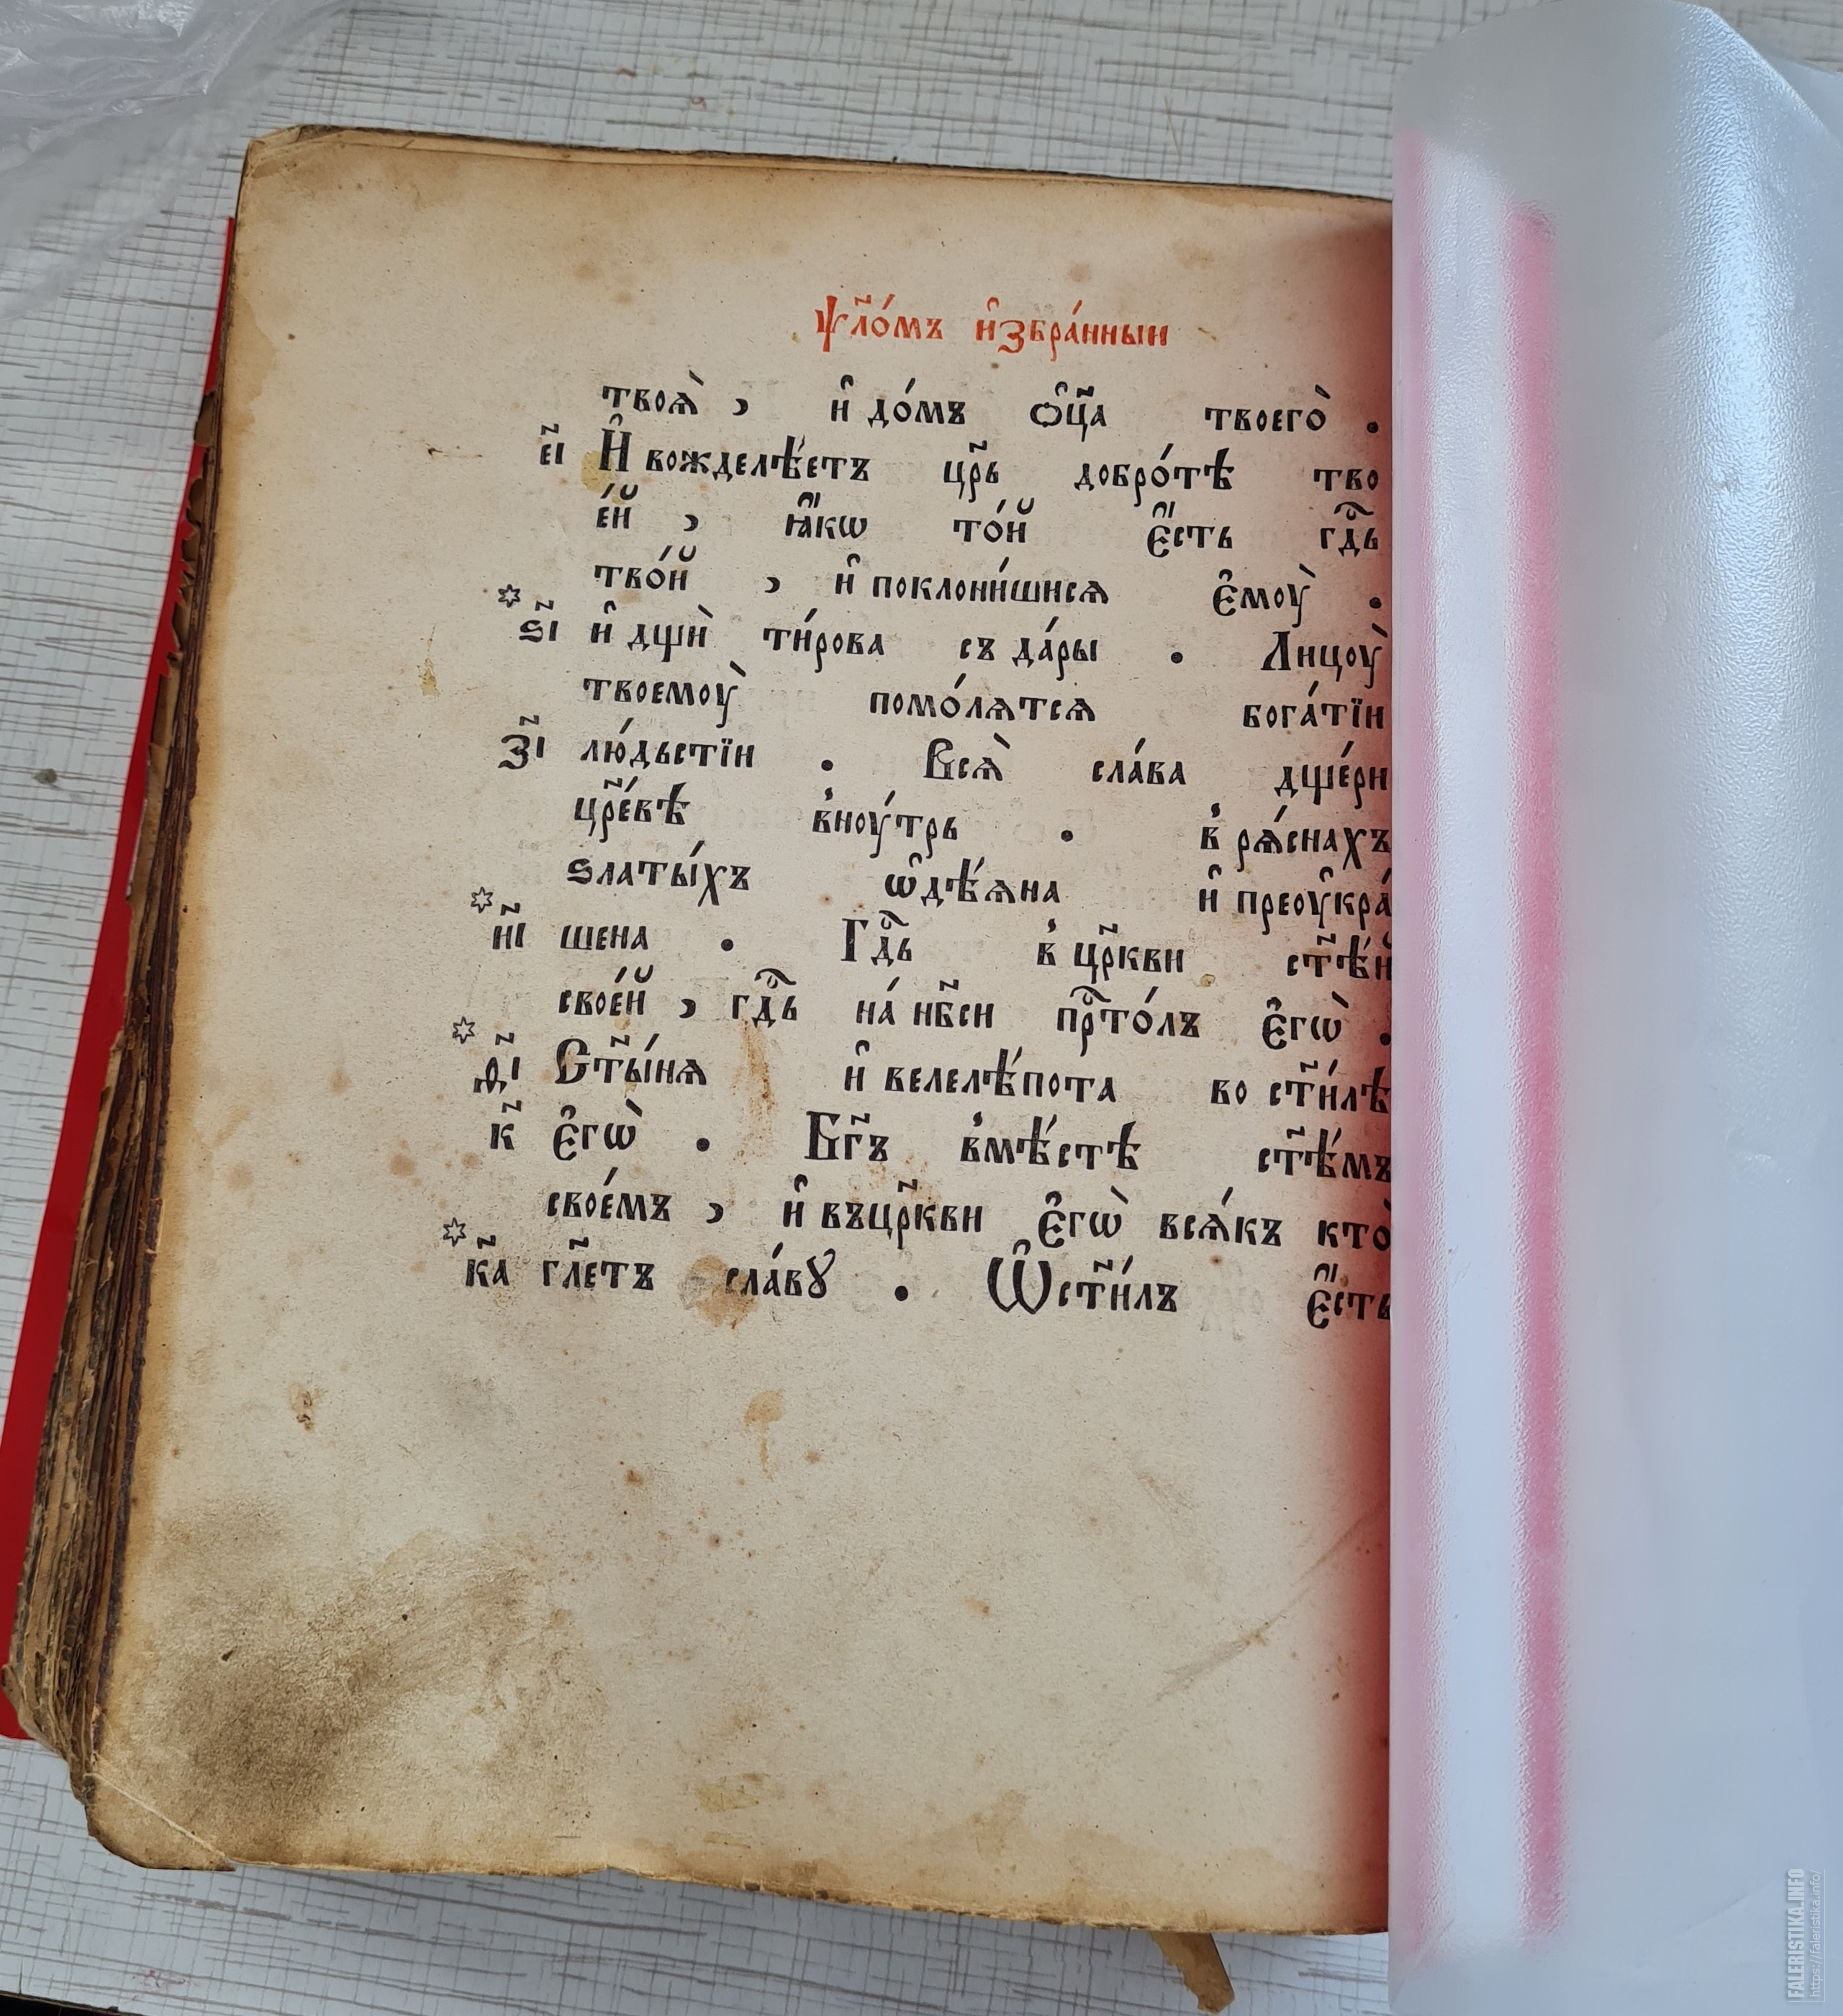 ѱл҃о́мъ и҆збра́нныи
твоѧ̀ , и҆ до́мъ ѻ҆ц҃а твоего̀ .
є҃і И҆ вожделѣ́етъ цр҃ь добро́тѣ тво
е́й , ꙗ҆́кѡ то́й є҆́сть гдⷭ҇ь
тво́й , и҆ поклони́шисѧ є҆моу̀ .
* ѕ҃і и҆ дщѝ ти́рова съ да́ры . Лицоу̀
твоемоу̀ помо́лѧтсѧ бога́тїи
з҃і лю́дьстїи . Всѧ̀ сла́ва дщє́ри
цр҃е́вѣ в̾ноу́трь . в̾ рѧ́снахъ
ѕлаты́хъ ѡ҆дѣ́ѧна и҆ преоу҆кра́
* и҃і шена . Гдⷭ҇ь в̾ цр҃кви ст҃ѣ́й
свое́й , гдⷭ҇ь на́ нб҃си прⷭ҇то́лъ є҆гѡ̀ .
* ѳ҃і Ст҃ы́нѧ и҆ велелѣ́пота во ст҃и́лѣ
к҃ є҆гѡ̀ . Бг҃ъ в̾мѣ́стѣ ст҃ѣ́мъ
свое́мъ , и҆ въцр҃кви є҆гѡ̀ всѧ́къ кто̀
* к҃а гл҃етъ сла́вꙋ . Ѡ҆ст҃и́лъ є҆́сть
FALERISTIKA.INFO
https://faleristika.info/